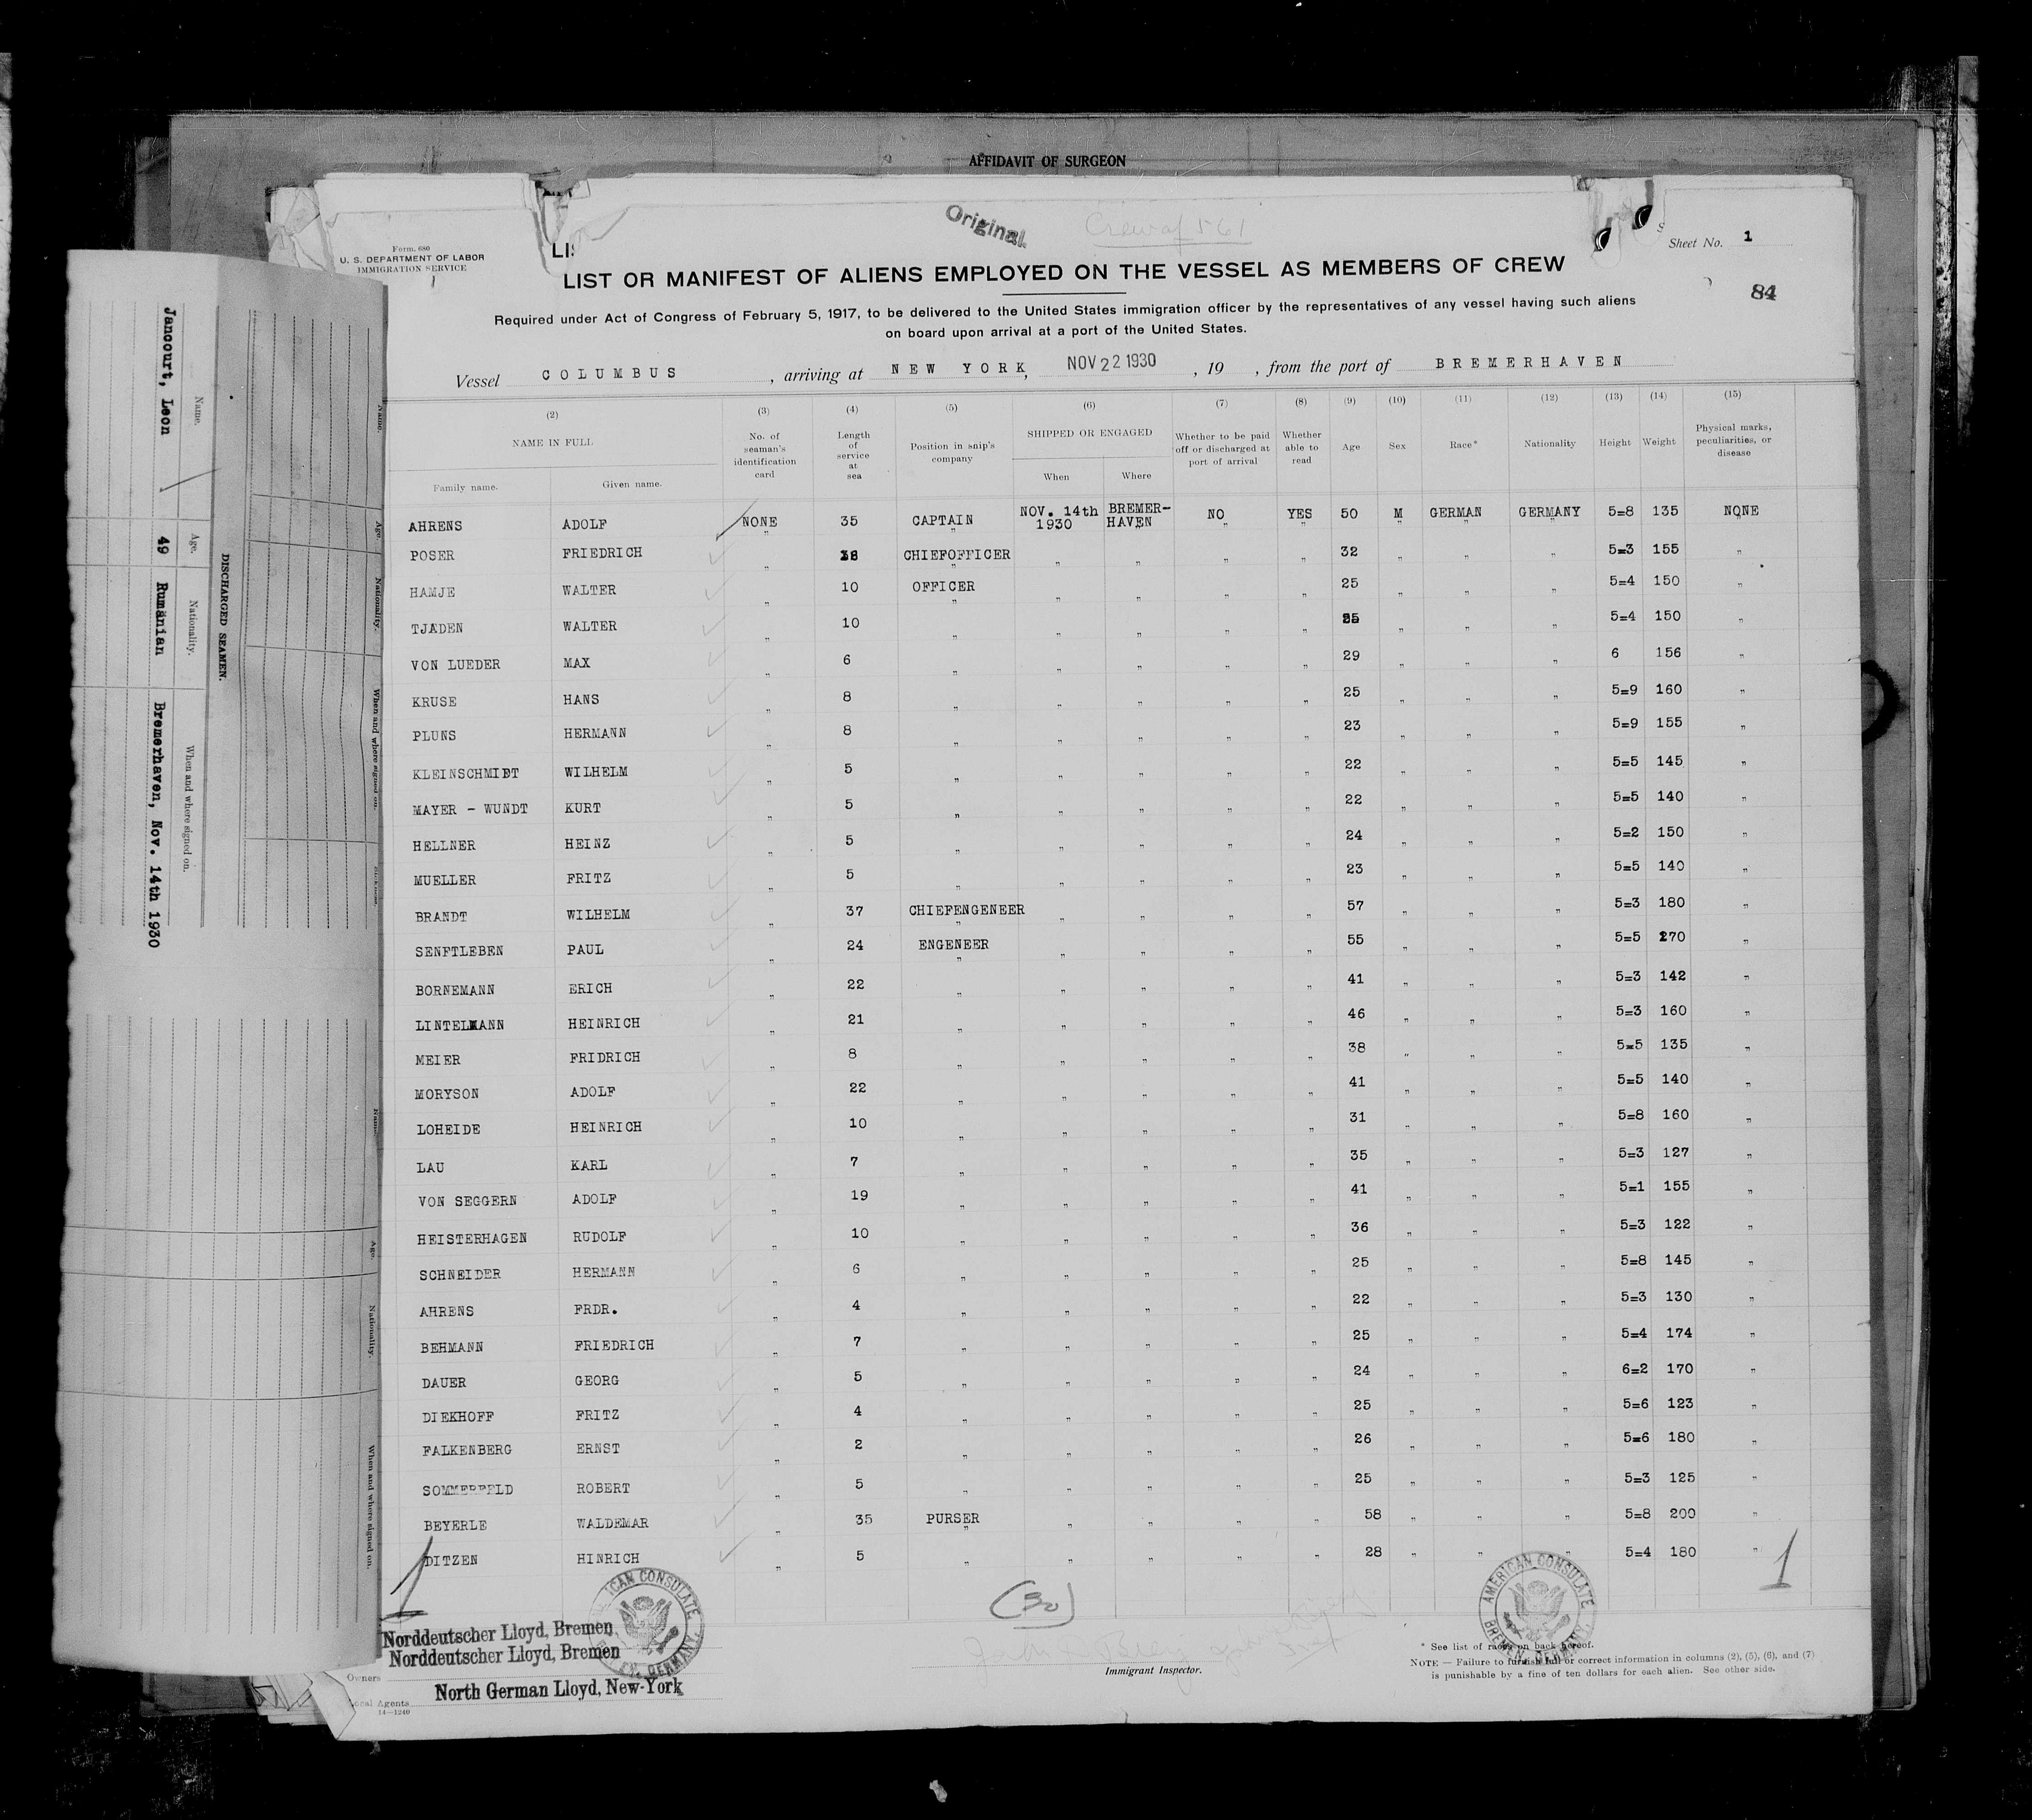 AFFIDAVIT OF SURGEON
Original
Crew of 561
Sheet No. 1
84
Form. 680
U. S. DEPARTMENT OF LABOR
IMMIGRATION SERVICE
LIST OR MANIFEST OF ALIENS EMPLOYED ON THE VESSEL AS MEMBERS OF CREW
Required under Act of Congress of February 5, 1917, to be delivered to the United States immigration officer by the representatives of any vessel having such aliens
on board upon arrival at a port of the United States.
Vessel COLUMBUS, arriving at NEW YORK, NOV 22 1930, 19 , from the port of BREMERHAVEN
(2) (3) (4) (5) (6) (7) (8) (9) (10) (11) (12) (13) (14) (15)
NAME IN FULL
Family name. Given name.
No. of seaman's identification card
Length of service at sea
Position in ship's company
SHIPPED OR ENGAGED
When Where
Whether to be paid off or discharged at port of arrival
Whether able to read
Age Sex Race* Nationality Height Weight
Physical marks, peculiarities, or disease
AHRENS ADOLF NONE 35 CAPTAIN NOV. 14th 1930 BREMER-HAVEN NO YES 50 M GERMAN GERMANY 5=8 135 NONE
POSER FRIEDRICH " CHIEFOFFICER " " " " 32 " " " 5=3 155 "
HAMJE WALTER " 10 OFFICER " " " " 25 " " " 5=4 150 "
TJADEN WALTER " 10 " " " " " " " " 5=4 150 "
VON LUEDER MAX " 6 " " " " " 29 " " " 6 156 "
KRUSE HANS " 8 " " " " " 25 " " " 5=9 160 "
PLUNS HERMANN " 8 " " " " " 23 " " " 5=9 155 "
KLEINSCHMIDT WILHELM " 5 " " " " " 22 " " " 5=5 145 "
MAYER - WUNDT KURT " 5 " " " " " 22 " " " 5=5 140 "
HELLNER HEINZ " 5 " " " " " 24 " " " 5=2 150 "
MUELLER FRITZ " 5 " " " " " 23 " " " 5=5 140 "
BRANDT WILHELM " 37 CHIEFENGENEER " " " " 57 " " " 5=3 180 "
SENFTLEBEN PAUL " 24 ENGENEER " " " " 55 " " " 5=5 270 "
BORNEMANN ERICH " 22 " " " " " 41 " " " 5=3 142 "
LINTELMANN HEINRICH " 21 " " " " " 46 " " " 5=3 160 "
MEIER FRIDRICH " 8 " " " " " 38 " " " 5=5 135 "
MORYSON ADOLF " 22 " " " " " 41 " " " 5=5 140 "
LOHEIDE HEINRICH " 10 " " " " " 31 " " " 5=8 160 "
LAU KARL " 7 " " " " " 35 " " " 5=3 127 "
VON SEGGERN ADOLF " 19 " " " " " 41 " " " 5=1 155 "
HEISTERHAGEN RUDOLF " 10 " " " " " 36 " " " 5=3 122 "
SCHNEIDER HERMANN " 6 " " " " " 25 " " " 5=8 145 "
AHRENS FRDR. " 4 " " " " " 22 " " " 5=3 130 "
BEHMANN FRIEDRICH " 7 " " " " " 25 " " " 5=4 174 "
DAUER GEORG " 5 " " " " " 24 " " " 6=2 170 "
DIEKHOFF FRITZ " 4 " " " " " 25 " " " 5=6 123 "
FALKENBERG ERNST " 2 " " " " " 26 " " " 5=6 180 "
SOMMERFELD ROBERT " 5 " " " " " 25 " " " 5=3 125 "
BEYERLE WALDEMAR " 35 PURSER " " " " 58 " " " 5=8 200 "
DITZEN HINRICH " 5 " " " " " 28 " " " 5=4 180 "
1
1
(30)
AMERICAN CONSULATE
BREMEN, GERMANY.
Norddeutscher Lloyd, Bremen
Norddeutscher Lloyd, Bremen
Owners
North German Lloyd, New-York
Local Agents
14—1240
Immigrant Inspector.
* See list of races on back hereof.
NOTE — Failure to furnish full or correct information in columns (2), (5), (6), and (7)
is punishable by a fine of ten dollars for each alien. See other side.
DISCHARGED SEAMEN.
Name. Age. Nationality. When and where signed on.
Jancourt, Leon 49 Rumänian Bremerhaven, Nov. 14th 1930
Name. Age. Nationality. When and where signed on.
Name. Age. Nationality. When and where signed on.